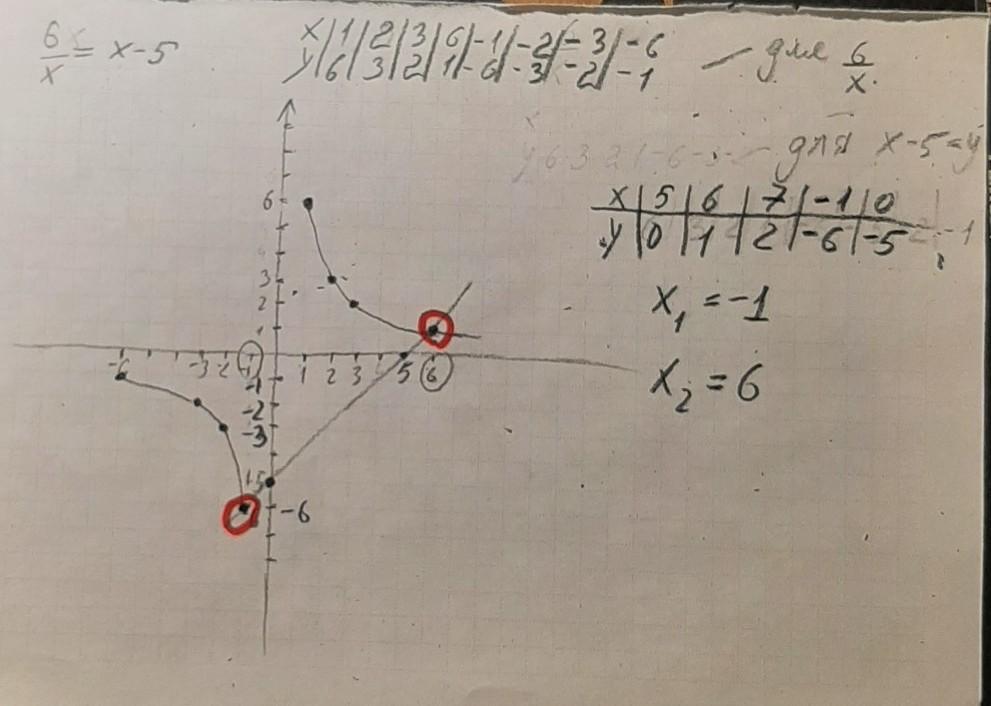 6/x = x-5
x|1|2|3|6|-1|-2|-3|-6
y|6|3|2|1|-6|-3|-2|-1 — для 6/x.
y 6 3 2 1 -6 -3 — для x-5=y
x|5|6|7|-1|0
y|0|1|2|-6|-5 -1
x₁ = -1
x₂ = 6
6
3
2
1
-6 -3 -2 -1 1 2 3 5 6
-1
-2
-3
-5
-6